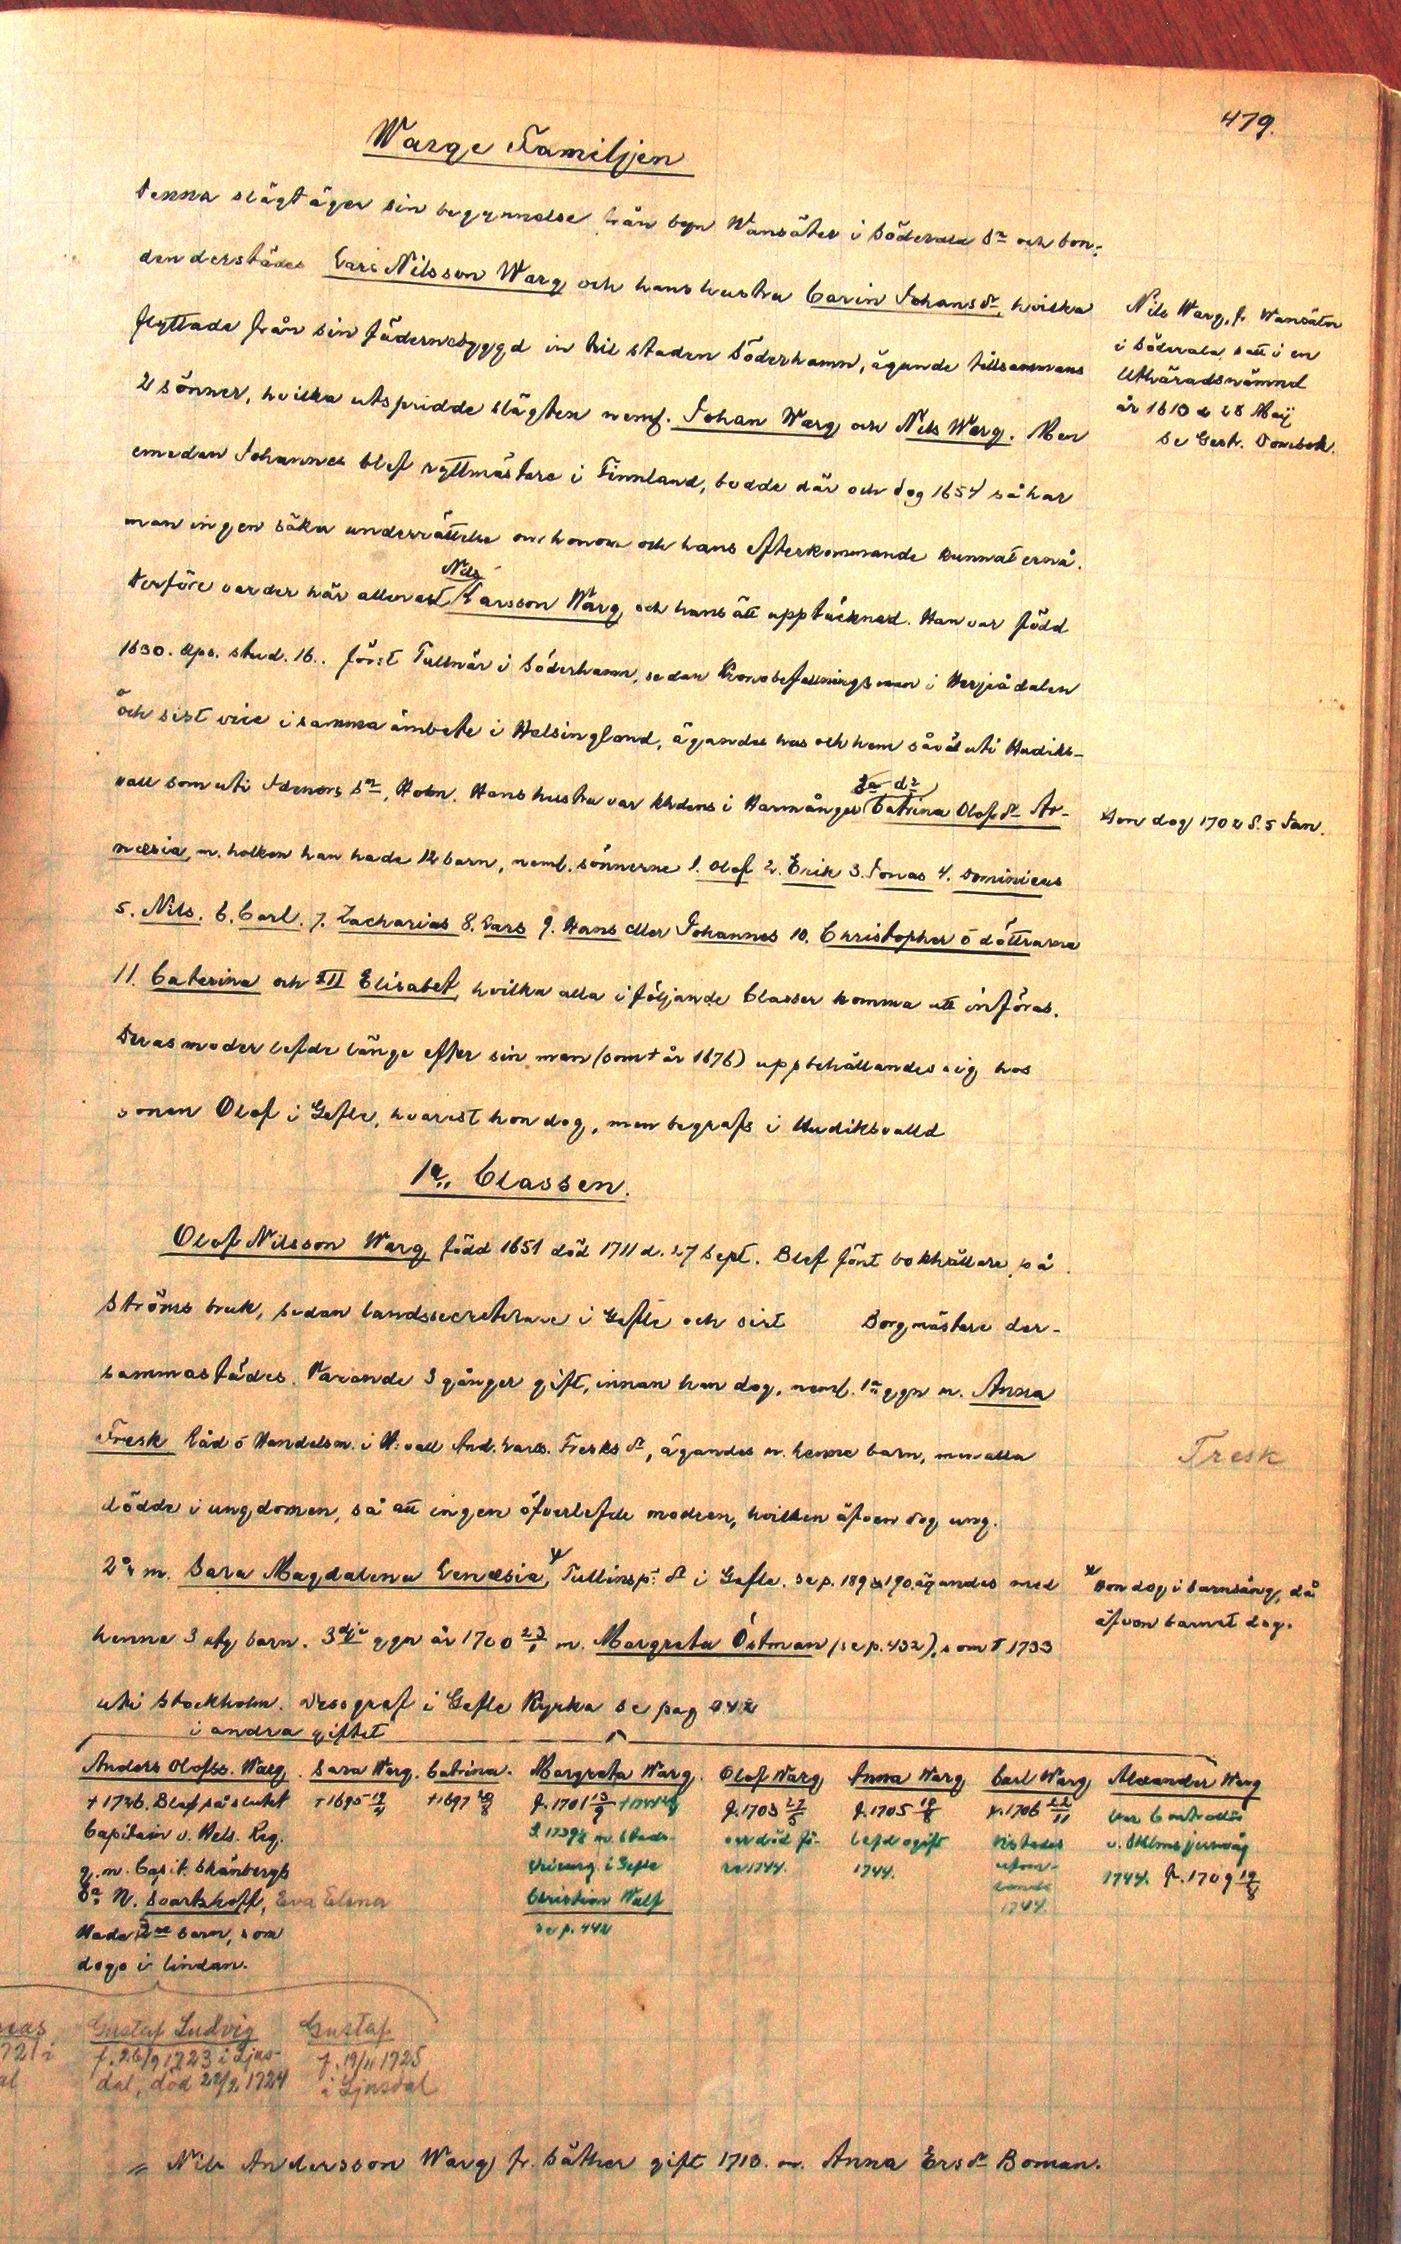 479.
Warge Familjen
Denna slägt äger sin begynnelse från byn Wansäter i Söderala Sn och bon-
den derstädes Lars Nilsson Warg och hans hustru Carin Johansdr, hvilka
flyttade från sin fädernebyggd in till staden Söderhamn, ägande tillsammans
2 sönner, hvilka utspridde slägten neml. Johan Warg och Nils Warg. Men
emedan Johannes blef ryttmästare i Finnland, bodde där och dog 1654 så har
man ingen säker underrättelse om honom och hans efterkommande kunnat ernå.
Nils
Derföre varder här allenast Larsson Warg och hans ätt upptäcknad. Han var född
1630. Ups. stud. 16.. först Tullnär i Söderhamn, sedan Kronobefallningsman i Herjeådalen
och sist vice i samma ämbete i Helsingland, ägandes hus och hem såväl uti Hudiks-
vall som uti Idenors Sn, Hobn. Hans hustru var khdens i Harmånger Catrina Olofsdr Ar-
næsia, m. holken han hade 12 barn, neml. sönnerne 1. Olof 2. Erik 3. Jonas 4. Dominicus
5. Nils. 6. Carl. 7. Zacharias 8. Lars 9. Hans eller Johannes 10. Christopher o döttrarna
11. Caterina och XII Elisabet, hvilka alla i följande Classer komma att införas.
Deras moder lefde länge efter sin man (som † år 1676) uppehållandes sig hos
sonen Olof i Gefle, hvarest hon dog, men begrafs i Hudiksvalld
Nils Warg, fr. Wansäter
i Söderala, satt i en
Uthäradsnämnd
år 1610 d 28 Maij
se Gestr. Dombok.
Hon dog 1702 d. 5 Jan.
1a, Classen.
Olof Nilsson Warg, född 1651 död 1711 d. 27 Sept. Blef först bokhållare på
Ströms bruk, sedan landssecreterare i Gefle och sist Borgmästare der-
sammastädes. Varande 3 gånger gift, innan han dog, neml. 1a ggn m. Anna
Fresk Råd o Handelsm. i H:vall And. Larss. Fresks dr, ägandes m. henne barn, men alla
dödde i ungdomen, så att ingen öfverlefde modren, hvilken äfven dog ung.
2a m. Sara Magdalena Lenæsia, Tullinsp: dr i Gefle. se p. 189 o 190. ägandes med
henne 3 st. barn. 3dje ggn år 1700 23/1 m. Margreta Östman (se p. 432), som † 1733
uti Stockholm. Dess graf i Gefle Kyrka se pag 442
Fresk
Hon dog i barnsäng, då
äfven barnet dog.
i andra giftet
Anders Olofss. Warg. Sara Warg. Catrina. Margreta Warg. Olof Warg Anna Warg Carl Warg Alexander Warg
† 1726. Blef på slutet
Capitain v. Hels. Reg.
g. m. Capit. Skånbergs
Ea N. Svartshoff, Eva Elena
Hade 2ne barn, som
dogo i lindan.
† 1695 12/4
† 1697 20/8
f. 1701 13/9
g. 1739 m. Stads-
chirurg. i Gefle
Christian Walf
se p. 442
f. 1703 27/5
var död fö-
re 1744.
f. 1705 18/8
lefd ogift
1744.
f. 1706 22/11
vistades
utom-
lands
1744.
var Controllör
v. Sthlms jernvåg
1744. f. 1709 19/8
Gustaf Ludvig
f. 26/9 1723 i Ljus-
dal, död 22/2 1724
Gustaf
f. 19/11 1725
i Ljusdal
Nils Andersson Warg fr. Säther gift 1713. m. Anna Ersdr Boman.